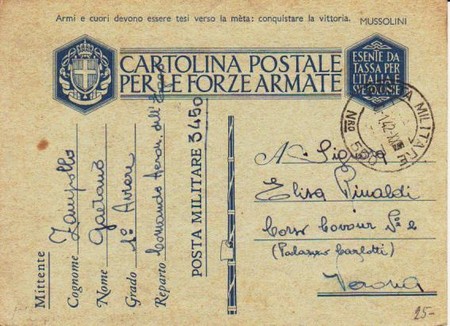 Armi e cuori devono essere tesi verso la mèta: conquistare la vittoria. MUSSOLINI
CARTOLINA POSTALE
PER LE FORZE ARMATE
ESENTE DA
TASSA PER
L'ITALIA E
POSTA MILITARE
Nro
Mittente
Cognome Zampollo
Nome Gaetano
Grado 1° Aviere
Reparto Comando Aeron. dell'
POSTA MILITARE 3450
A Signora
Elisa Rinaldi
Corso Cavour N° 2
(Palazzo Carlotti)
Verona
25-